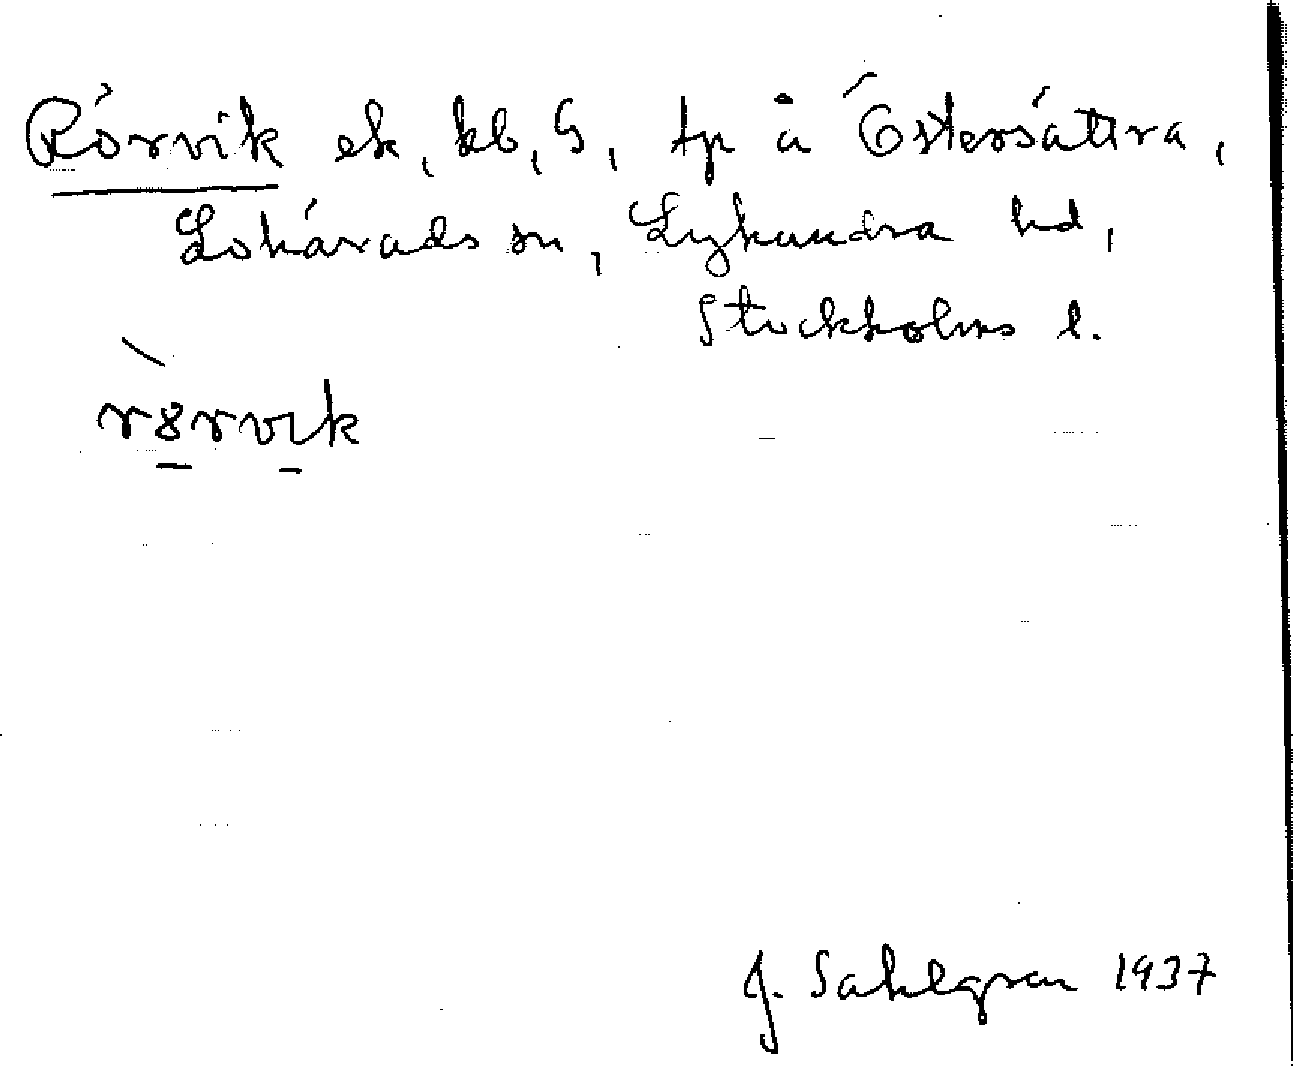 Rörvik ek, kb, S, tp å Östersättra,
Lohärads sn, Lyhundra hd,
Stockholms l.
rörvik
J. Sahlgren 1937